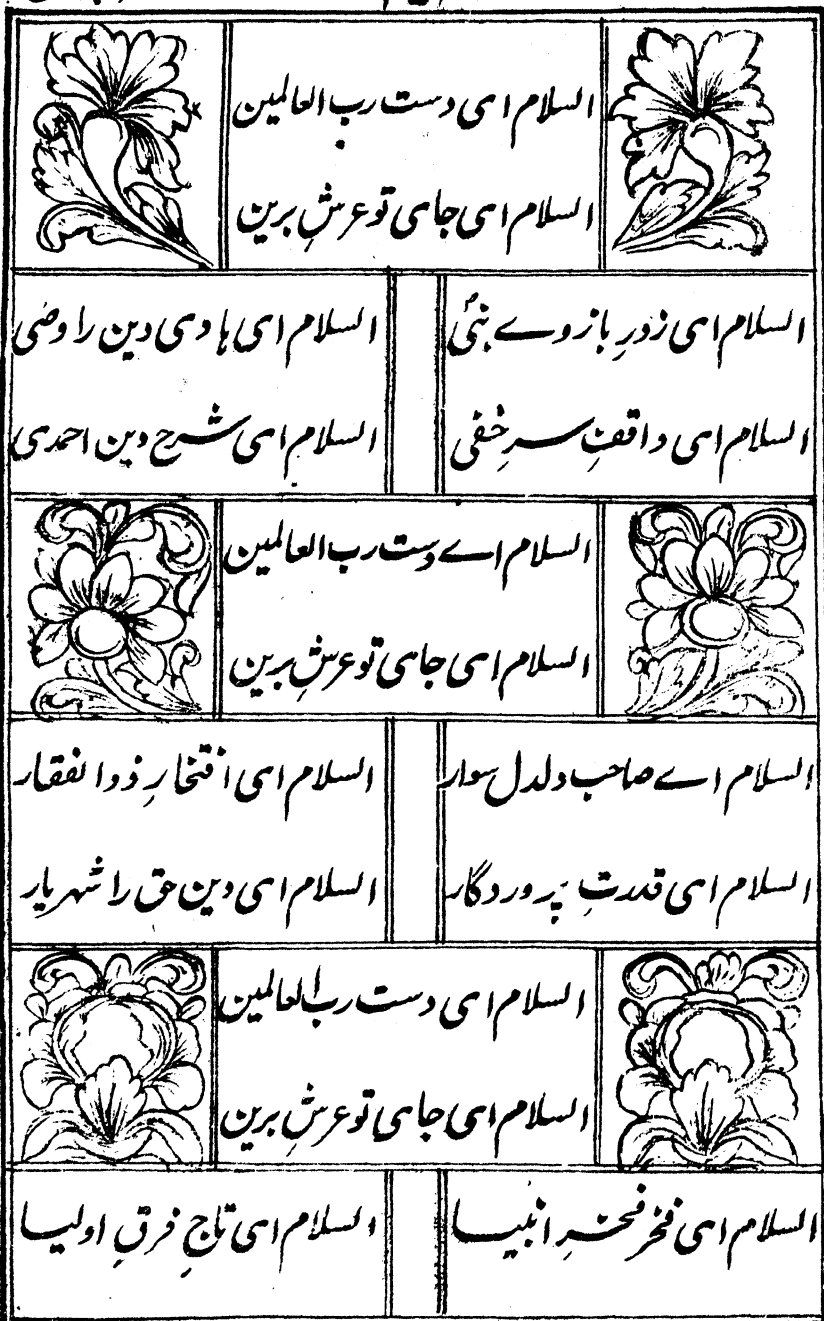 السلام ای دست رب العالمین
السلام ای جای تو عرشِ برین
السلام ای زورِ بازوے نبیؐ السلام ای ہادی دین را وضی
السلام ای واقفِ سرِ خفی السلام ای شرح دین احمدی
السلام اے دست رب العالمین
السلام ای جای تو عرشِ برین
السلام اے صاحب دلدل سوار السلام ای افتخارِ ذوالفقار
السلام ای قدرتِ پروردگار السلام ای دین حق را شہریار
السلام ای دست رب العالمین
السلام ای جای تو عرشِ برین
السلام ای فخر فخرِ انبیا السلام ای تاجِ فرقِ اولیا